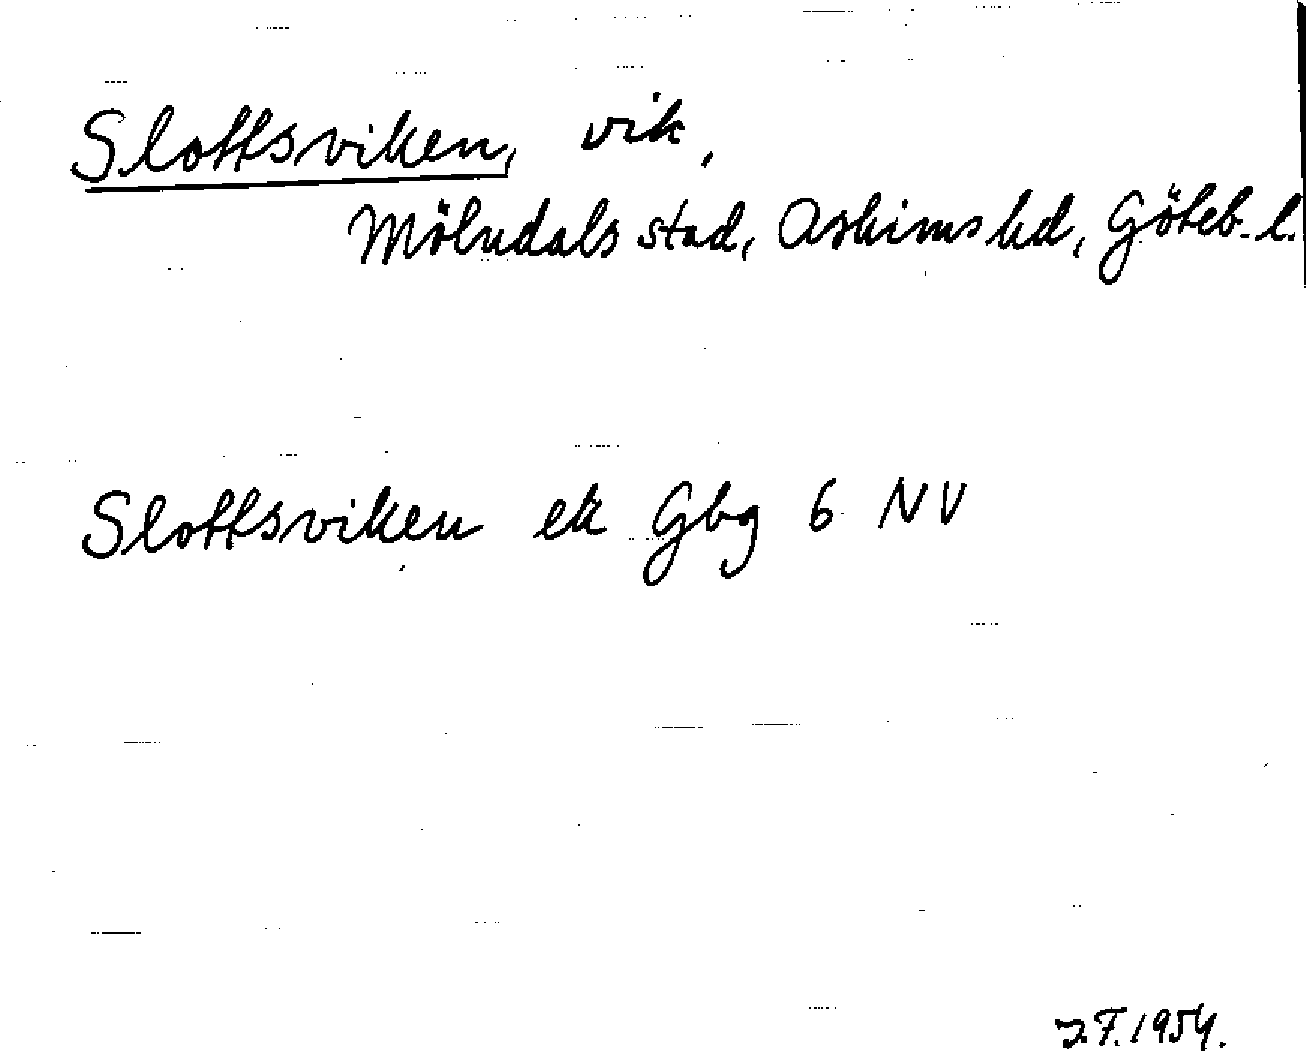 Slottsviken, vik,
Mölndals stad, Askims hd, Göteb. l.
Slottsviken ek Gbg 6 NV
J.F. 1954.